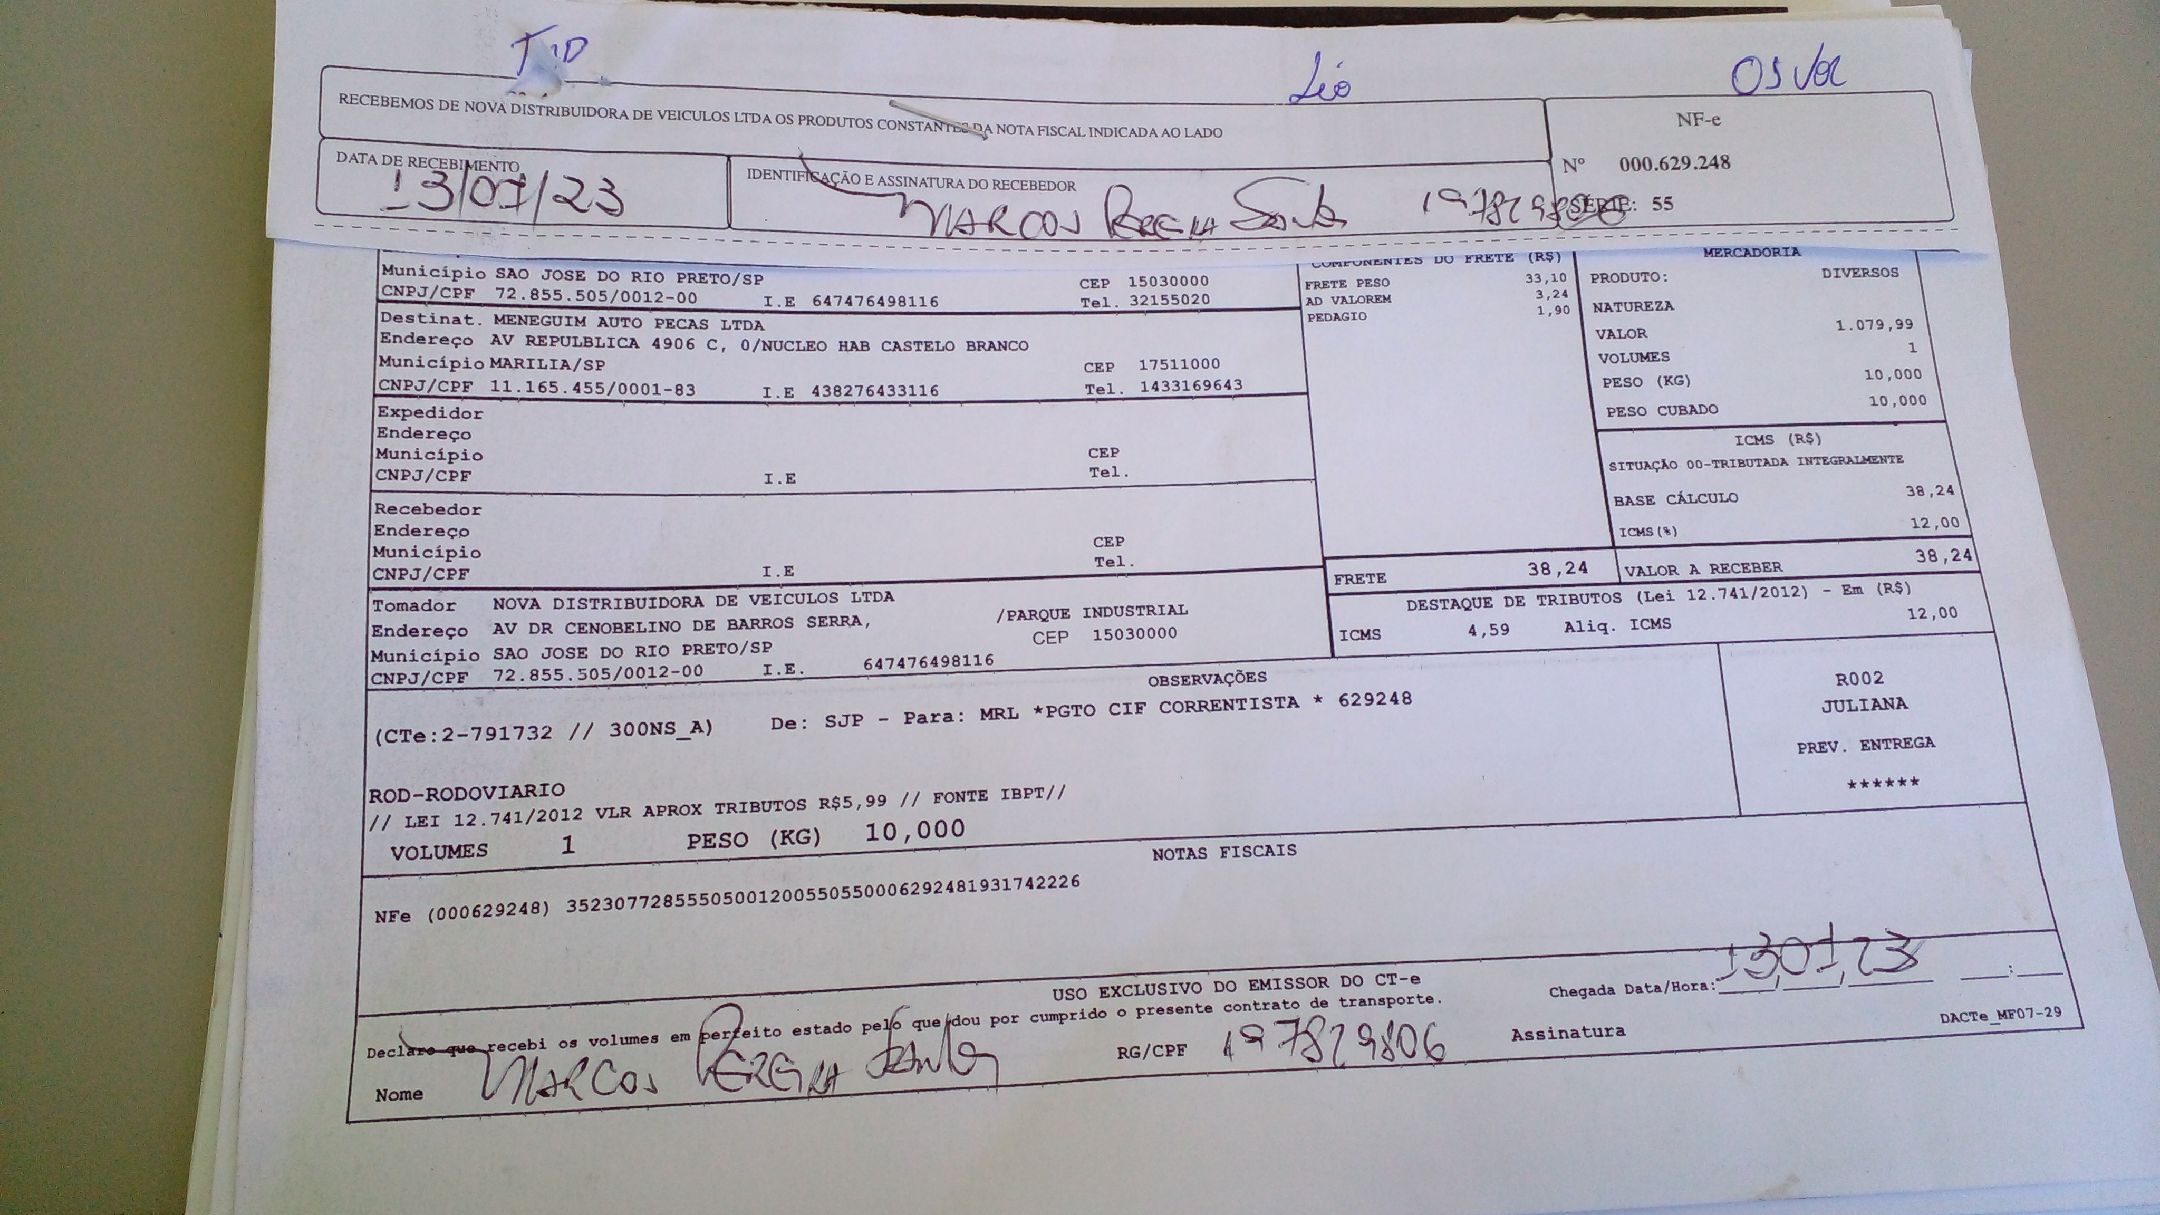 Léo
OSVal
RECEBEMOS DE NOVA DISTRIBUIDORA DE VEICULOS LTDA OS PRODUTOS CONSTANTES DA NOTA FISCAL INDICADA AO LADO
NF-e
Nº 000.629.248
SÉRIE: 55
DATA DE RECEBIMENTO
13/07/23
IDENTIFICAÇÃO E ASSINATURA DO RECEBEDOR
MARCOS PEREIRA
Município SAO JOSE DO RIO PRETO/SP CEP 15030000
CNPJ/CPF 72.855.505/0012-00 I.E 647476498116 Tel. 32155020
Destinat. MENEGUIM AUTO PECAS LTDA
Endereço AV REPULBLICA 4906 C, 0/NUCLEO HAB CASTELO BRANCO
Município MARILIA/SP CEP 17511000
CNPJ/CPF 11.165.455/0001-83 I.E 438276433116 Tel. 1433169643
Expedidor
Endereço
Município CEP
CNPJ/CPF I.E Tel.
Recebedor
Endereço
Município CEP
CNPJ/CPF I.E Tel.
Tomador NOVA DISTRIBUIDORA DE VEICULOS LTDA
Endereço AV DR CENOBELINO DE BARROS SERRA, /PARQUE INDUSTRIAL
Município SAO JOSE DO RIO PRETO/SP CEP 15030000
CNPJ/CPF 72.855.505/0012-00 I.E. 647476498116
COMPONENTES DO FRETE (R$)
FRETE PESO 33,10
AD VALOREM 3,24
PEDAGIO 1,90
MERCADORIA
PRODUTO: DIVERSOS
NATUREZA
VALOR 1.079,99
VOLUMES 1
PESO (KG) 10,000
PESO CUBADO 10,000
ICMS (R$)
SITUAÇÃO 00-TRIBUTADA INTEGRALMENTE
BASE CÁLCULO 38,24
ICMS(%) 12,00
FRETE 38,24 VALOR A RECEBER 38,24
DESTAQUE DE TRIBUTOS (Lei 12.741/2012) - Em (R$)
ICMS 4,59 Aliq. ICMS 12,00
OBSERVAÇÕES
(CTe:2-791732 // 300NS_A) De: SJP - Para: MRL *PGTO CIF CORRENTISTA * 629248
ROD-RODOVIARIO
// LEI 12.741/2012 VLR APROX TRIBUTOS R$5,99 // FONTE IBPT//
VOLUMES 1 PESO (KG) 10,000
R002
JULIANA
PREV. ENTREGA
******
NOTAS FISCAIS
NFe (000629248) 35230772855505001200550550006292481931742226
USO EXCLUSIVO DO EMISSOR DO CT-e
Declaro que recebi os volumes em perfeito estado pelo que dou por cumprido o presente contrato de transporte.
Chegada Data/Hora: 13 07 23 __:__
Nome MARCOS PEREIRA RG/CPF 197829806 Assinatura
DACTe_MF07-29